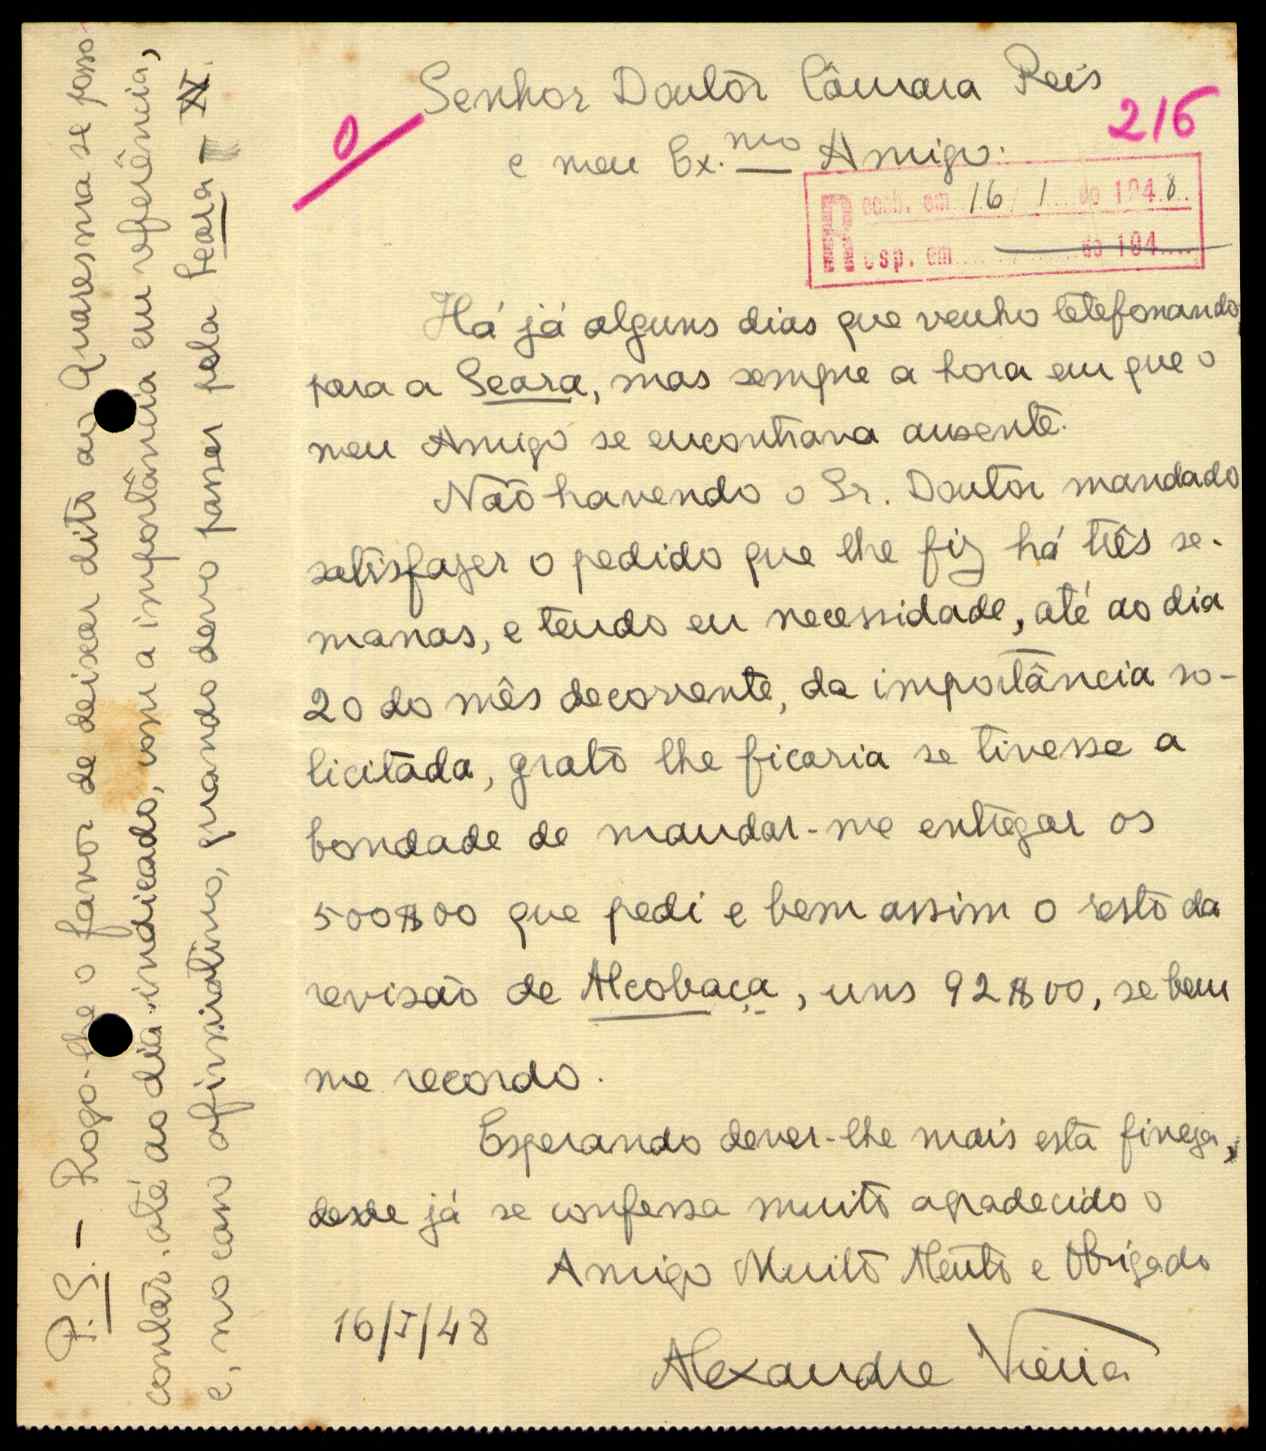 Senhor Doutôr Câmara Reis
e meu Ex.mo Amigo:
0
216
Receb. em 16/1 de 1948.
Resp. em de 194
Há já alguns dias que venho telefonando
para a Seara, mas sempre a hora em que o
meu Amigo se encontrava ausente.
Não havendo o Sr. Doutor mandado
satisfazer o pedido que lhe fiz há três se-
manas, e tendo eu necessidade, até ao dia
20 do mês decorrente, da importância so-
licitada, grato lhe ficaria se tivesse a
bondade de mandar-me entregar os
500$00 que pedi e bem assim o resto da
revisão de Alcobaça, uns 92$00, se bem
me recordo.
Esperando dever-lhe mais esta fineza,
desde já se confessa muito agradecido o
Amigo Muito Atento e Obrigado
16/I/48
Alexandre Vieira
P.S. — Rogo-lhe o favor de deixar dito ao Quaresma se posso
contar, até ao dia indicado, com a importância em referência,
e, no caso afirmativo, quando devo passar pela Seara — V.